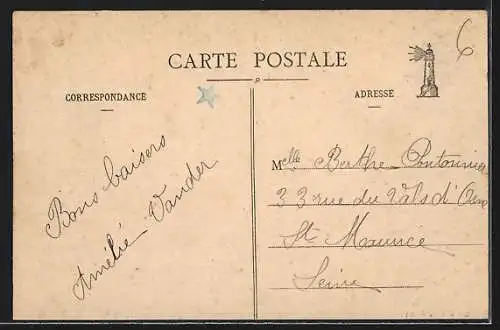 6
CARTE POSTALE
CORRESPONDANCE
ADRESSE
Bons baisers
Amélie Vander
Melle Berthe Pontonnier
33 rue du Val d'Osn
St Maurice
Seine